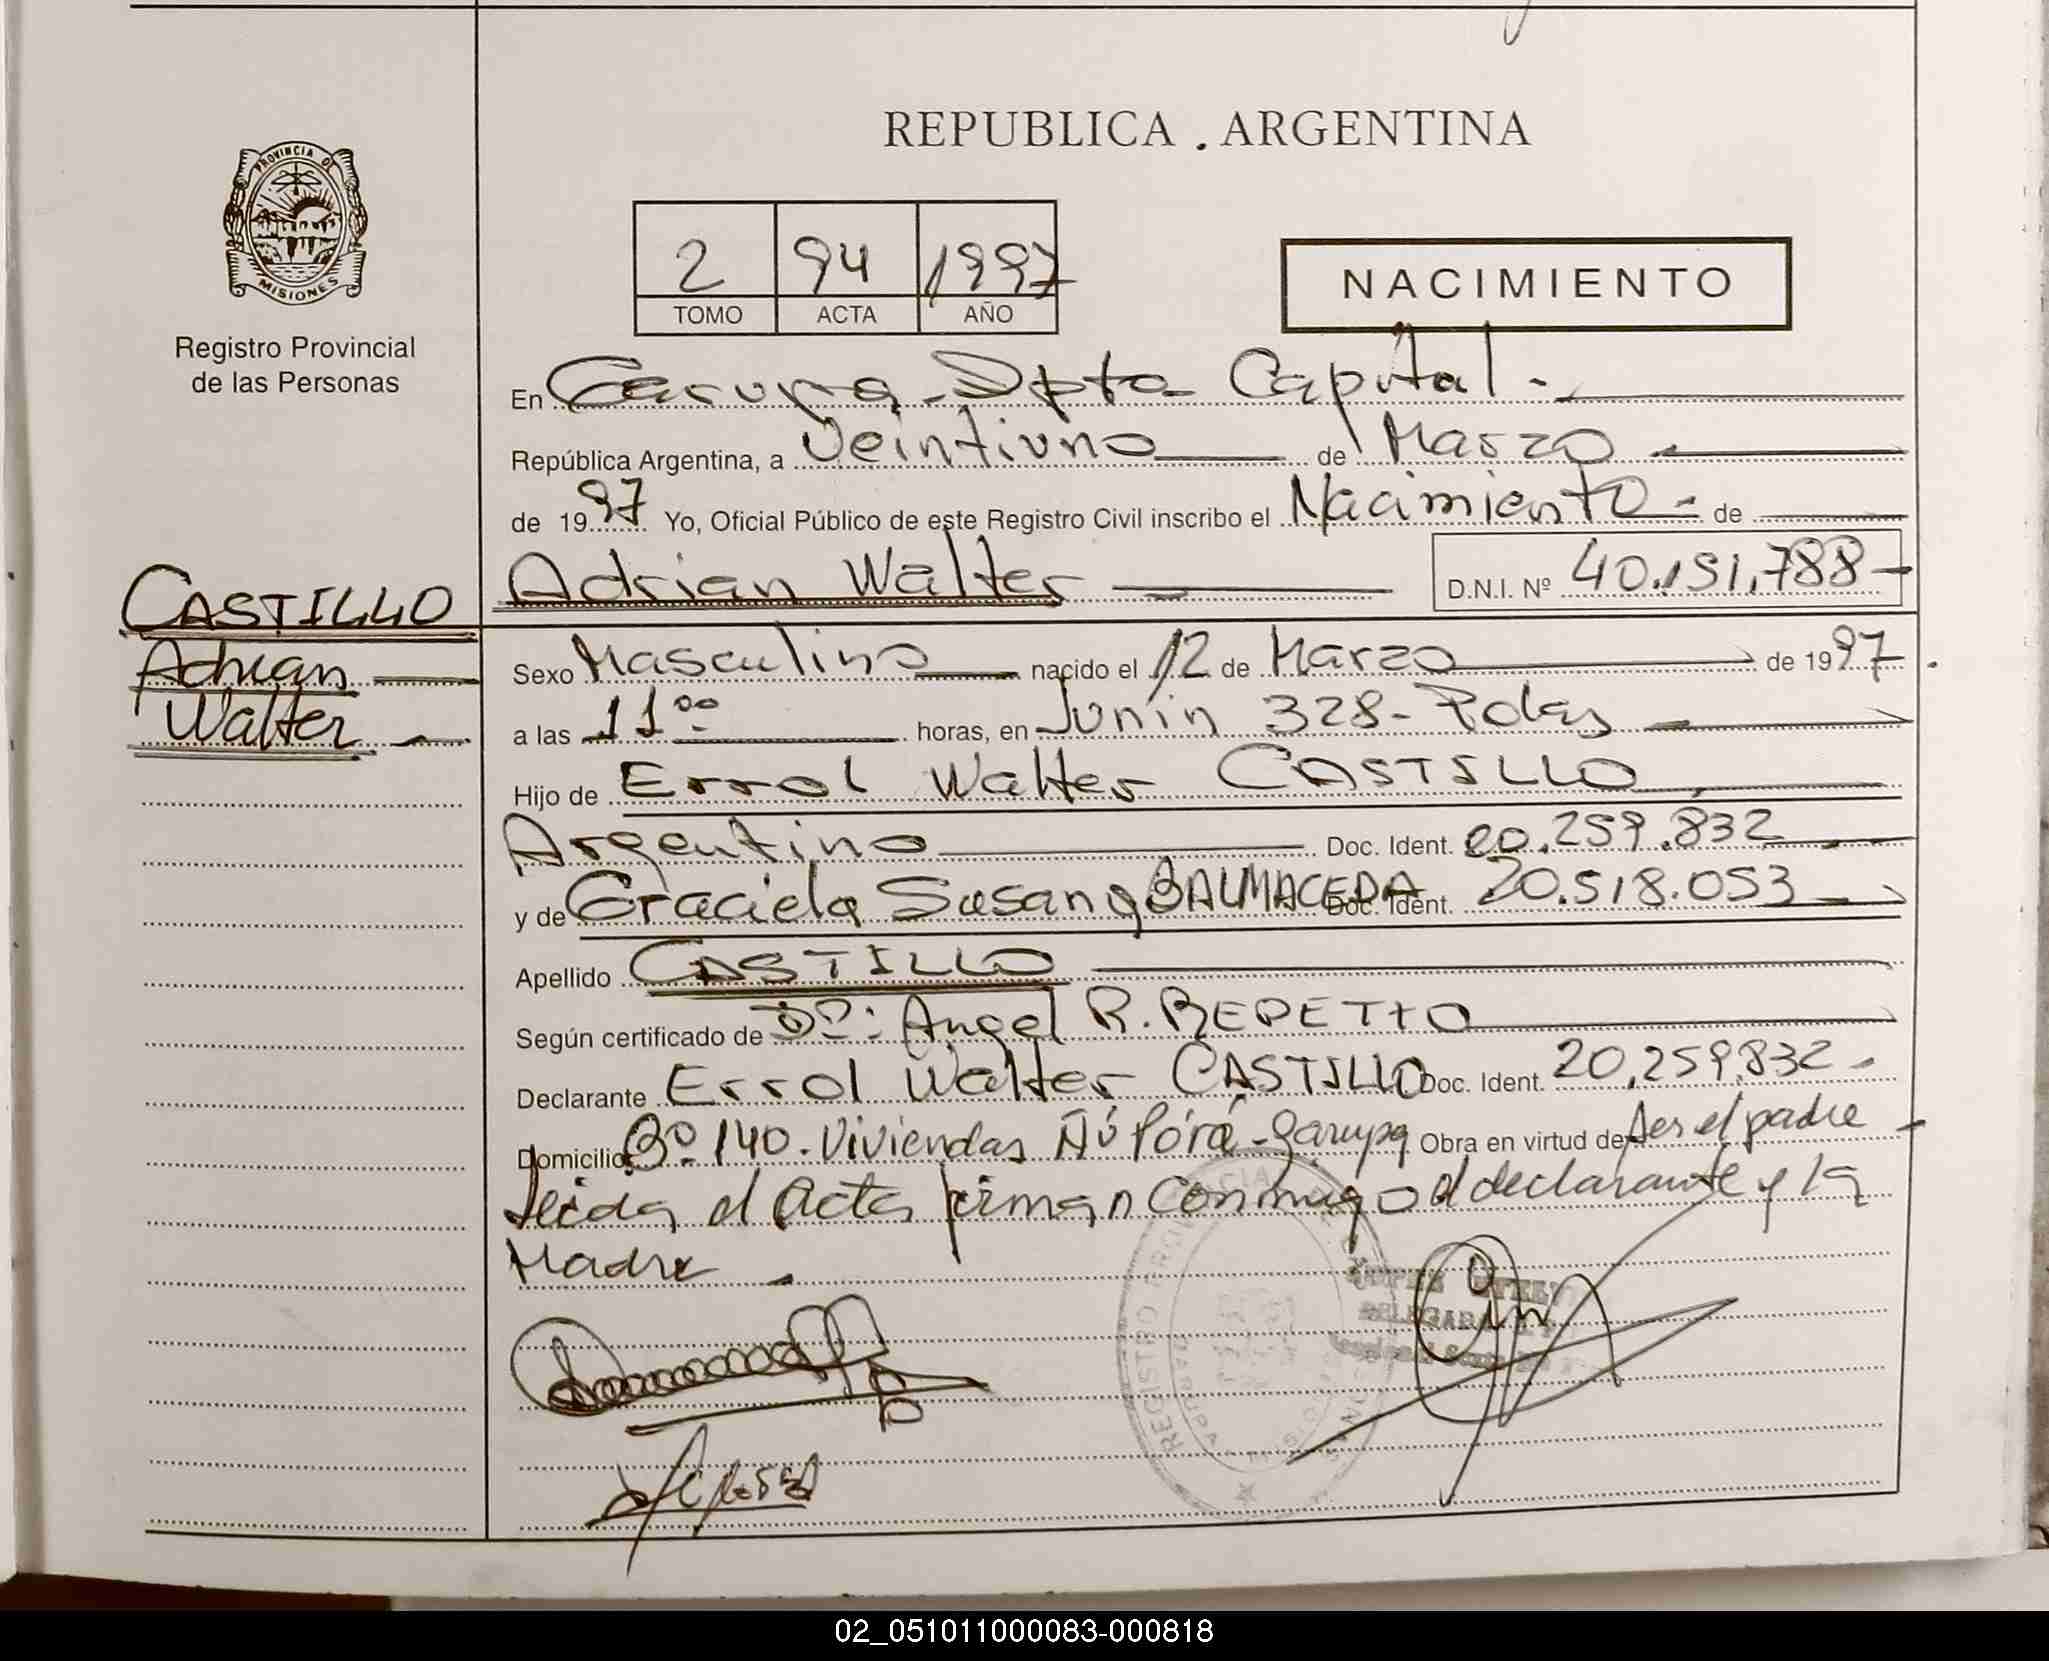 REPUBLICA . ARGENTINA
PROVINCIA DE
MISIONES
Registro Provincial
de las Personas
2 94 1997
TOMO ACTA AÑO
NACIMIENTO
En Garupa - Dpto Capital -
República Argentina, a Veintiuno de Marzo
de 1997 Yo, Oficial Público de este Registro Civil inscribo el Nacimiento - de
Adrian Walter D.N.I. Nº 40.191.788
CASTILLO
Adrian
Walter
Sexo Masculino nacido el 12 de Marzo de 1997.
a las 11 00 horas, en Junin 328 - Pdas
Hijo de Errol Walter CASTILLO
Argentino Doc. Ident. 20.259.832
y de Graciela Susana BALMACEDA Doc. Ident. 20.518.053
Apellido CASTILLO
Según certificado de Dº: Angel R. REPETTO
Declarante Errol Walter CASTILLO Doc. Ident. 20.259.832 -
Domicilio Bº 140 - Viviendas Ñú Porá - Garupa Obra en virtud de ser el padre
Leida el Acta firman conmigo el declarante y la
Madre -
REGISTRO PROV
02_051011000083-000818